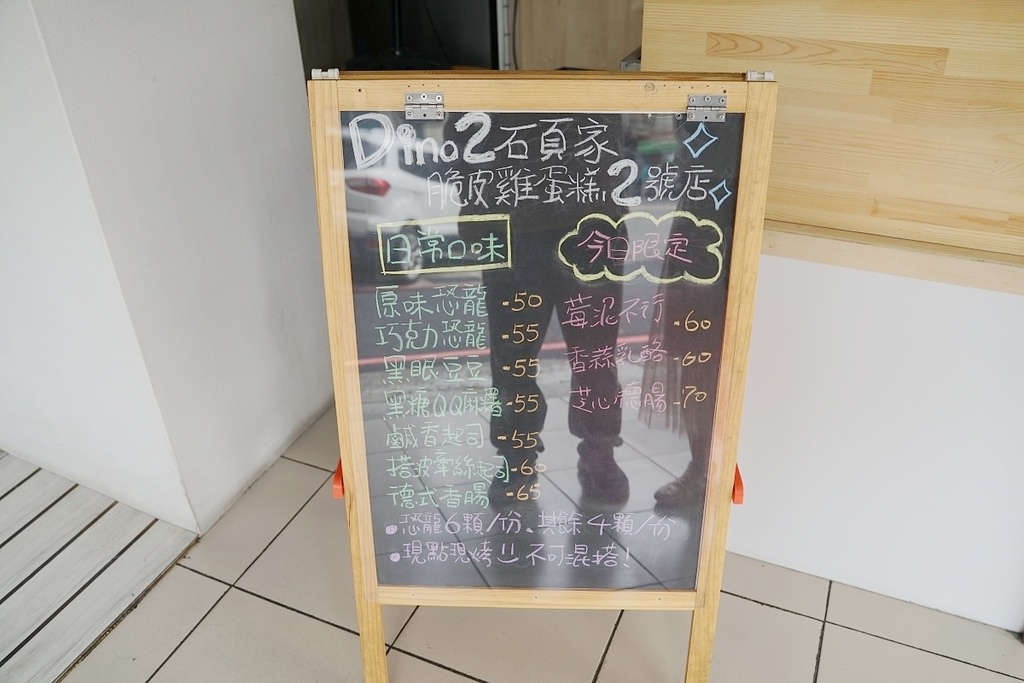 Dino2石頁家
脆皮雞蛋糕2號店
日常口味
原味恐龍-50
巧克力恐龍-55
黑眼豆豆-55
黑糖QQ麻糬-55
鹹香起司-55
搭披牽絲起司-60
德式香腸-65
今日限定
莓泥不行-60
香蒜乳酪-60
芝心德腸-70
•恐龍6顆/份、其餘4顆/份
•現點現烤 不可混搭!